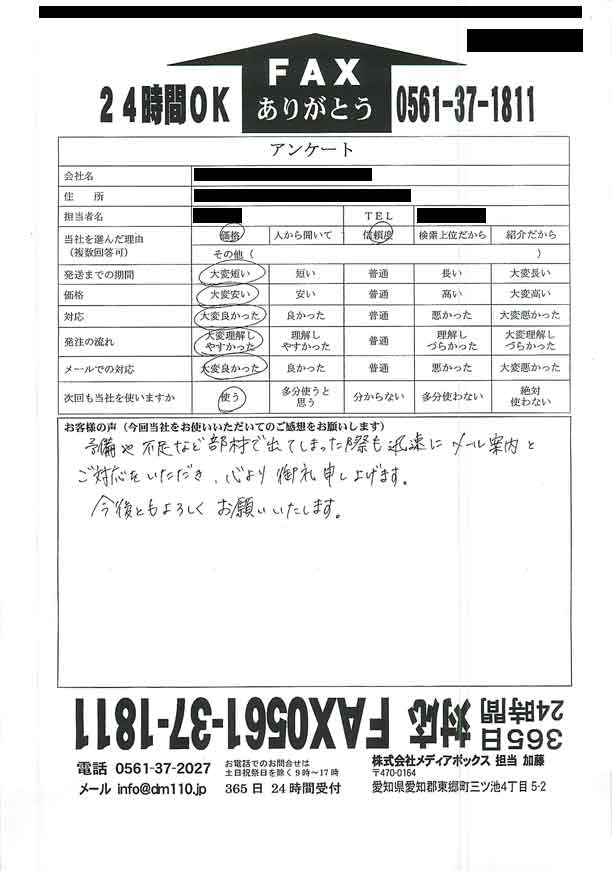 FAX
ありがとう
24時間OK
0561-37-1811
アンケート
会社名
住 所
担当者名 TEL
当社を選んだ理由 (複数回答可) 価格 人から聞いて 信頼度 検索上位だから 紹介だから
その他 ( )
発送までの期間 大変短い 短い 普通 長い 大変長い
価格 大変安い 安い 普通 高い 大変高い
対応 大変良かった 良かった 普通 悪かった 大変悪かった
発注の流れ 大変理解しやすかった 理解しやすかった 普通 理解しづらかった 大変理解しづらかった
メールでの対応 大変良かった 良かった 普通 悪かった 大変悪かった
次回も当社を使いますか 使う 多分使うと思う 分からない 多分使わない 絶対使わない
お客様の声 (今回当社をお使いいただいてのご感想をお願いします)
予備や不足など部材で出てしまった際も迅速にメール案内と
ご対応をいただき、心より御礼申し上げます。
今後ともよろしくお願いいたします。
365日
24時間 対応 FAX0561-37-1811
電話 0561-37-2027
メール info@dm110.jp
お電話でのお問合せは
土日祝祭日を除く9時〜17時
365日 24時間受付
株式会社メディアボックス 担当 加藤
〒470-0164
愛知県愛知郡東郷町三ツ池4丁目 5-2